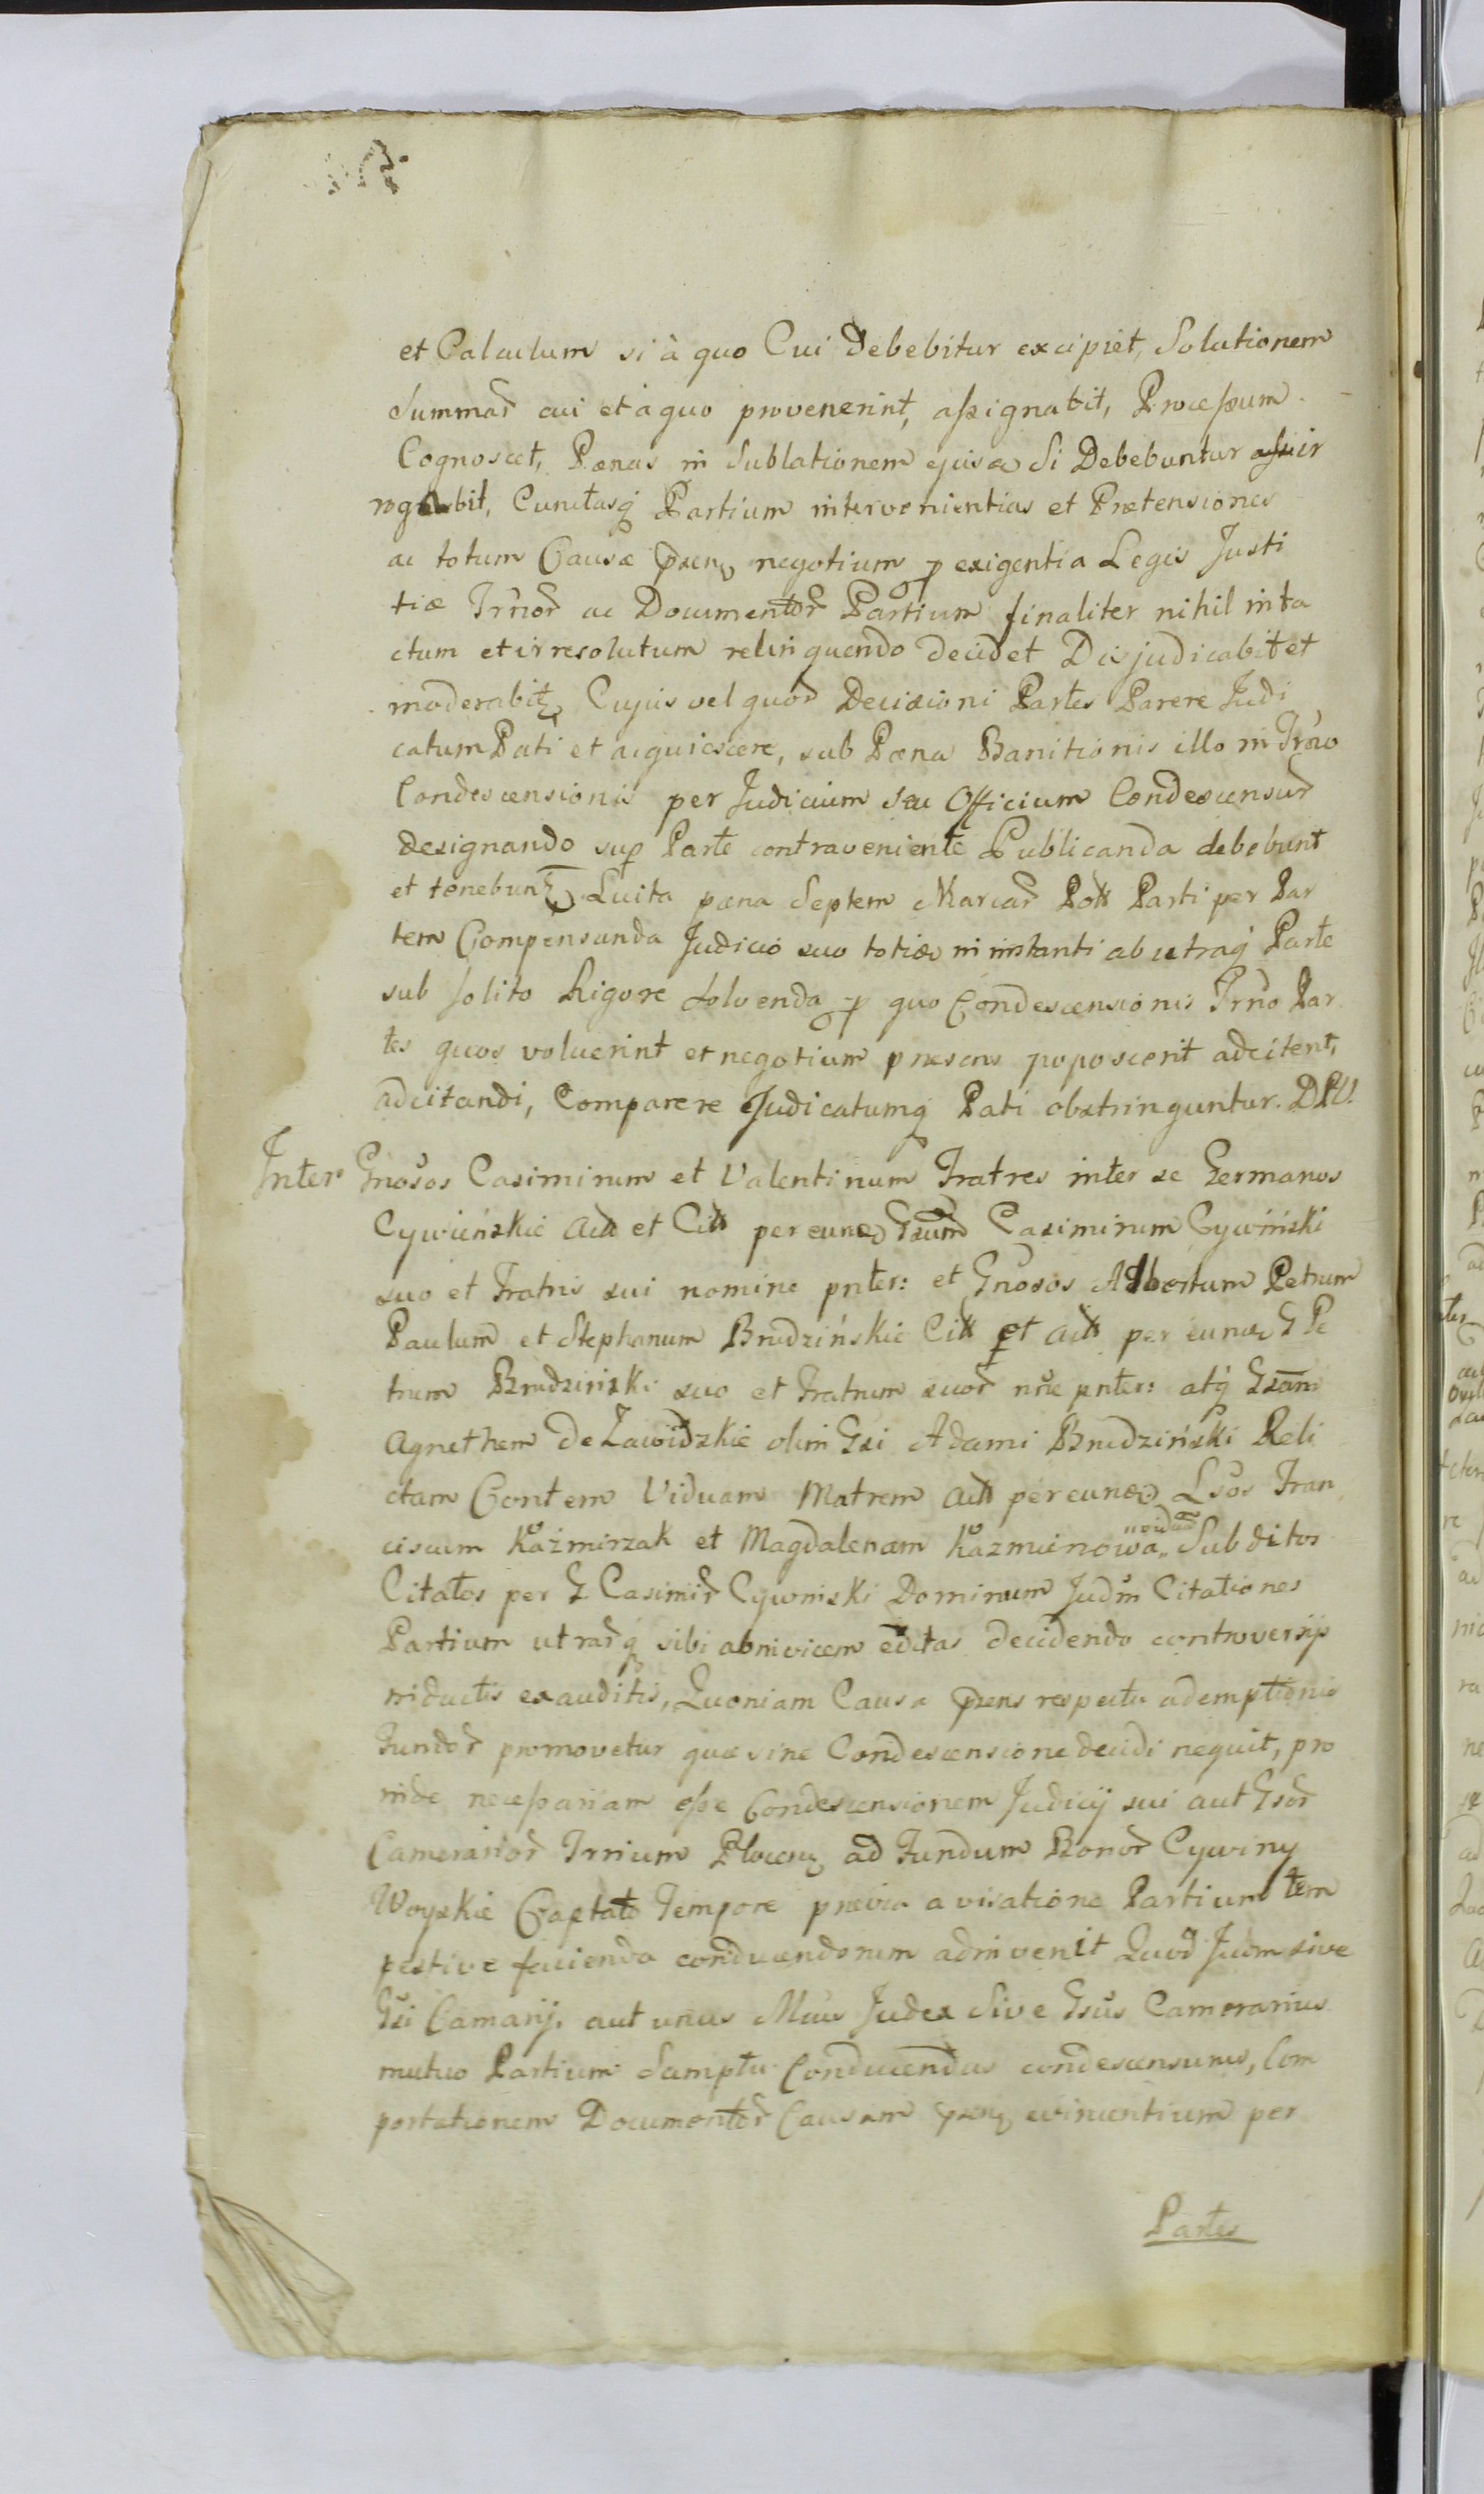 et Calculum si à quo Cui Debebitur excipiet, Solutionem
Summar̃ cui et à quo provenerint, assignabit, Processum
Cognoscet, Pænas in Sublationem ejus Si Debebuntur ir
rogabit, Cunctasq̃ Partium intervenientias et Prætensiones
ac totum Causæ præn̄ negotium p exigentia Legis Justi
tiæ Trrior̃ ac Documentor̃ Partium finaliter nihil inta
ctum et irresolutum relinquendo decidet Disjudicabit et
moderabit̃ Cujus vel quor̃ Decisioni Partes Parere Judi
catum Pati et acquiescere, sub Pæna Banitionis illo in Trno
Condescensionis per Judicium seu Officium Condescensur̃
designando sup Parte contraveniente Publicanda debebunt
et tenebunt̃ Luita pæna Septem Marcar̃ Poll Parti per Par
tem Compensanda Judicio suo toties in instanti ab utraq̃ Parte
sub solito Rigore solvenda p quo Condescensionis Trno Par
tes quos voluerint et negotium præsens poposcerit adcitent,
adcitandi, Comparere Judicatumq̃ Pati obstringuntur. DPU.
Inter Gnosos Casimirum et Valentinum Fratres inter se Germanos
Cywińskie Act et Citt per eund Gsum Casimirum Cywiński
suo et Fratris sui nomine pnter: et Gnosos Albertum Petrum
Paulum et Stephanum Brudzińskie Citt et Act per eund G Pe
trum Brudziński suo et Fratrum suor̃ nne pnter: atq̃ Gsam
Agnethem de Zawidzkie olim Gsi Adami Brudziński Reli
ctam Contem Viduam Matrem Act per eund Lsos Fran
ciscum Kaźmirzak et Magdalenam Kazmierowa viduã Subditos
Citatos per G Casimir̃ Cywinski Dominum Judm Citationes
Partium utrarq̃ sibi abinvicem editas decidendo controversijs
inductis exauditis, Quoniam Causa præns respectu ademptionis
Fundor̃ promovetur quæ sine Condescensione decidi nequit, pro
inde necessariam esse Condescensionem Judicij sui aut Gsor̃
Camerarior̃ Trrium Plocen̄ ad Fundum Bonor̃ Cywiny
Woyskie Captato Tempore prævia avisatione Partium tem
pestive facienda conducendorum adinvenit Quod Judm sive
Gsi Camarij. aut unus Mcus Judex Sive Gsus Camerarius
mutuo Partium Sumptu Conducendus condescensurus, Com
portationem Documentor̃ Causam præn̄ evincentium per
Partes